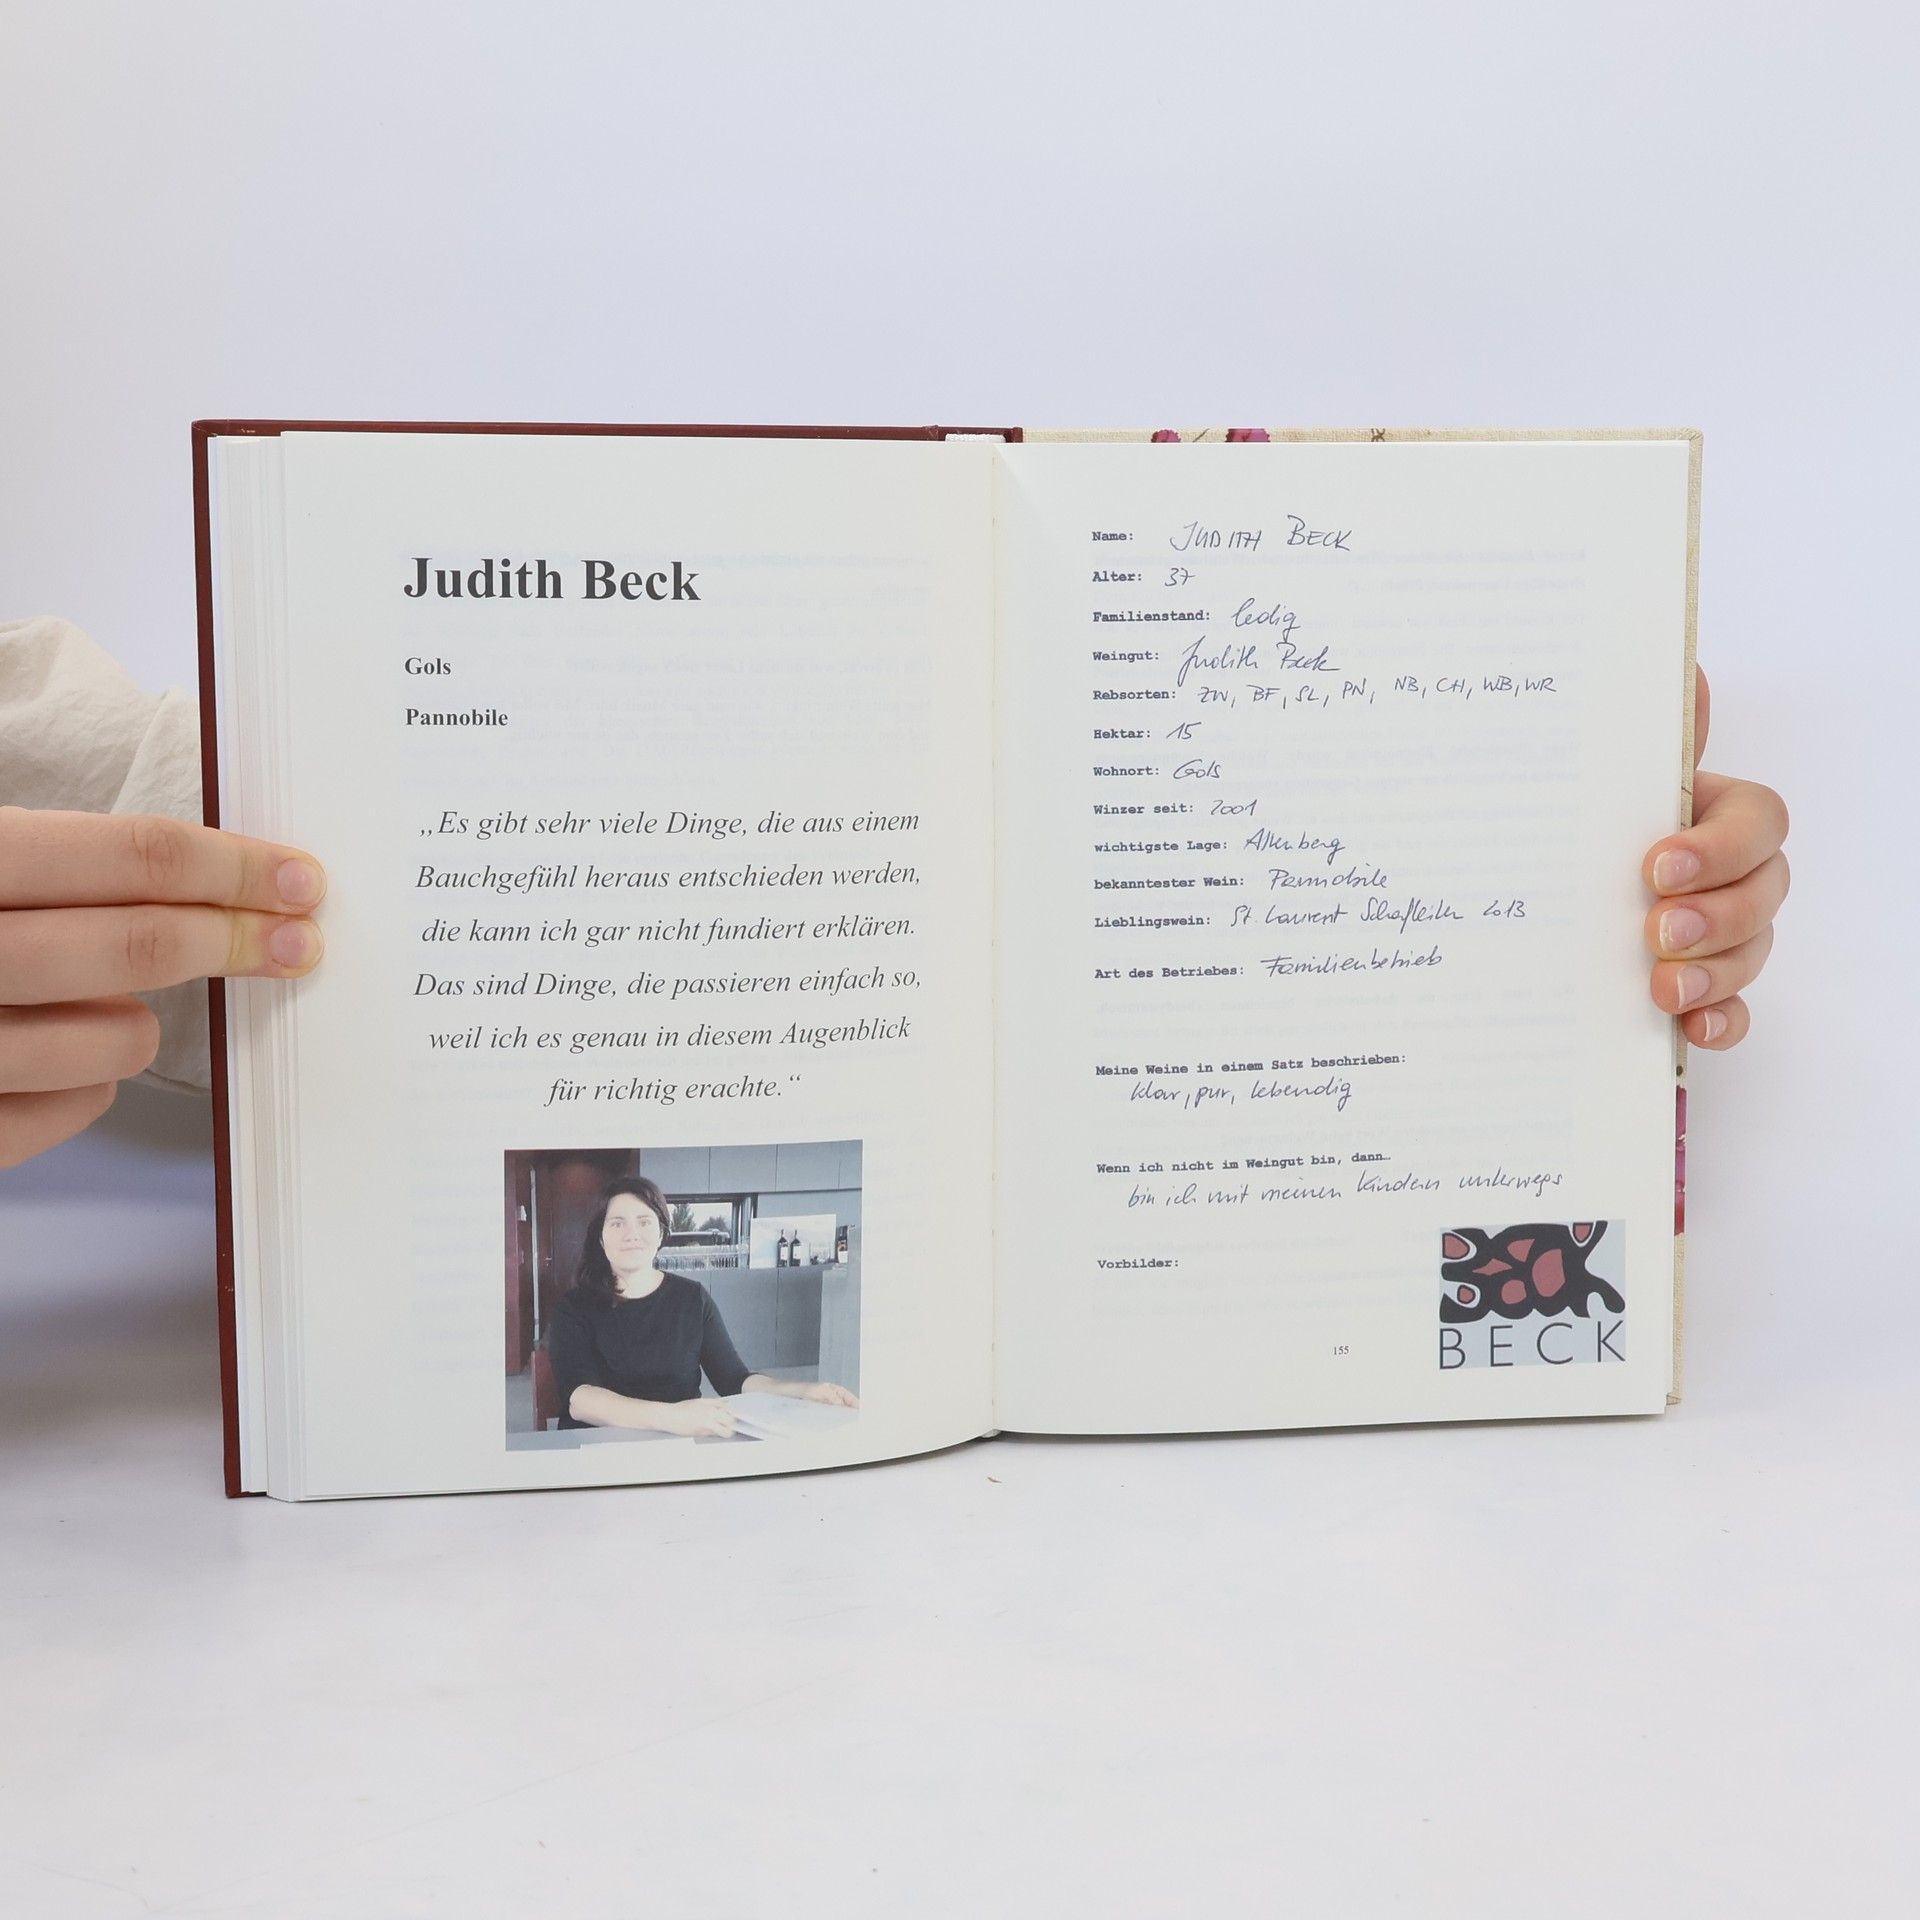 Judith Beck
Gols
Pannobile
„Es gibt sehr viele Dinge, die aus einem
Bauchgefühl heraus entschieden werden,
die kann ich gar nicht fundiert erklären.
Das sind Dinge, die passieren einfach so,
weil ich es genau in diesem Augenblick
für richtig erachte.“
Name: JUDITH BECK
Alter: 37
Familienstand: ledig
Weingut: Judith Beck
Rebsorten: ZW, BF, SL, PN, NB, CH, WB, WR
Hektar: 15
Wohnort: Gols
Winzer seit: 2001
wichtigste Lage: Altenberg
bekanntester Wein: Pannobile
Lieblingswein: St. Laurent Schafleiten 2013
Art des Betriebes: Familienbetrieb
Meine Weine in einem Satz beschrieben:
klar, pur, lebendig
Wenn ich nicht im Weingut bin, dann…
bin ich mit meinen Kindern unterwegs
Vorbilder:
BECK
BECK
155